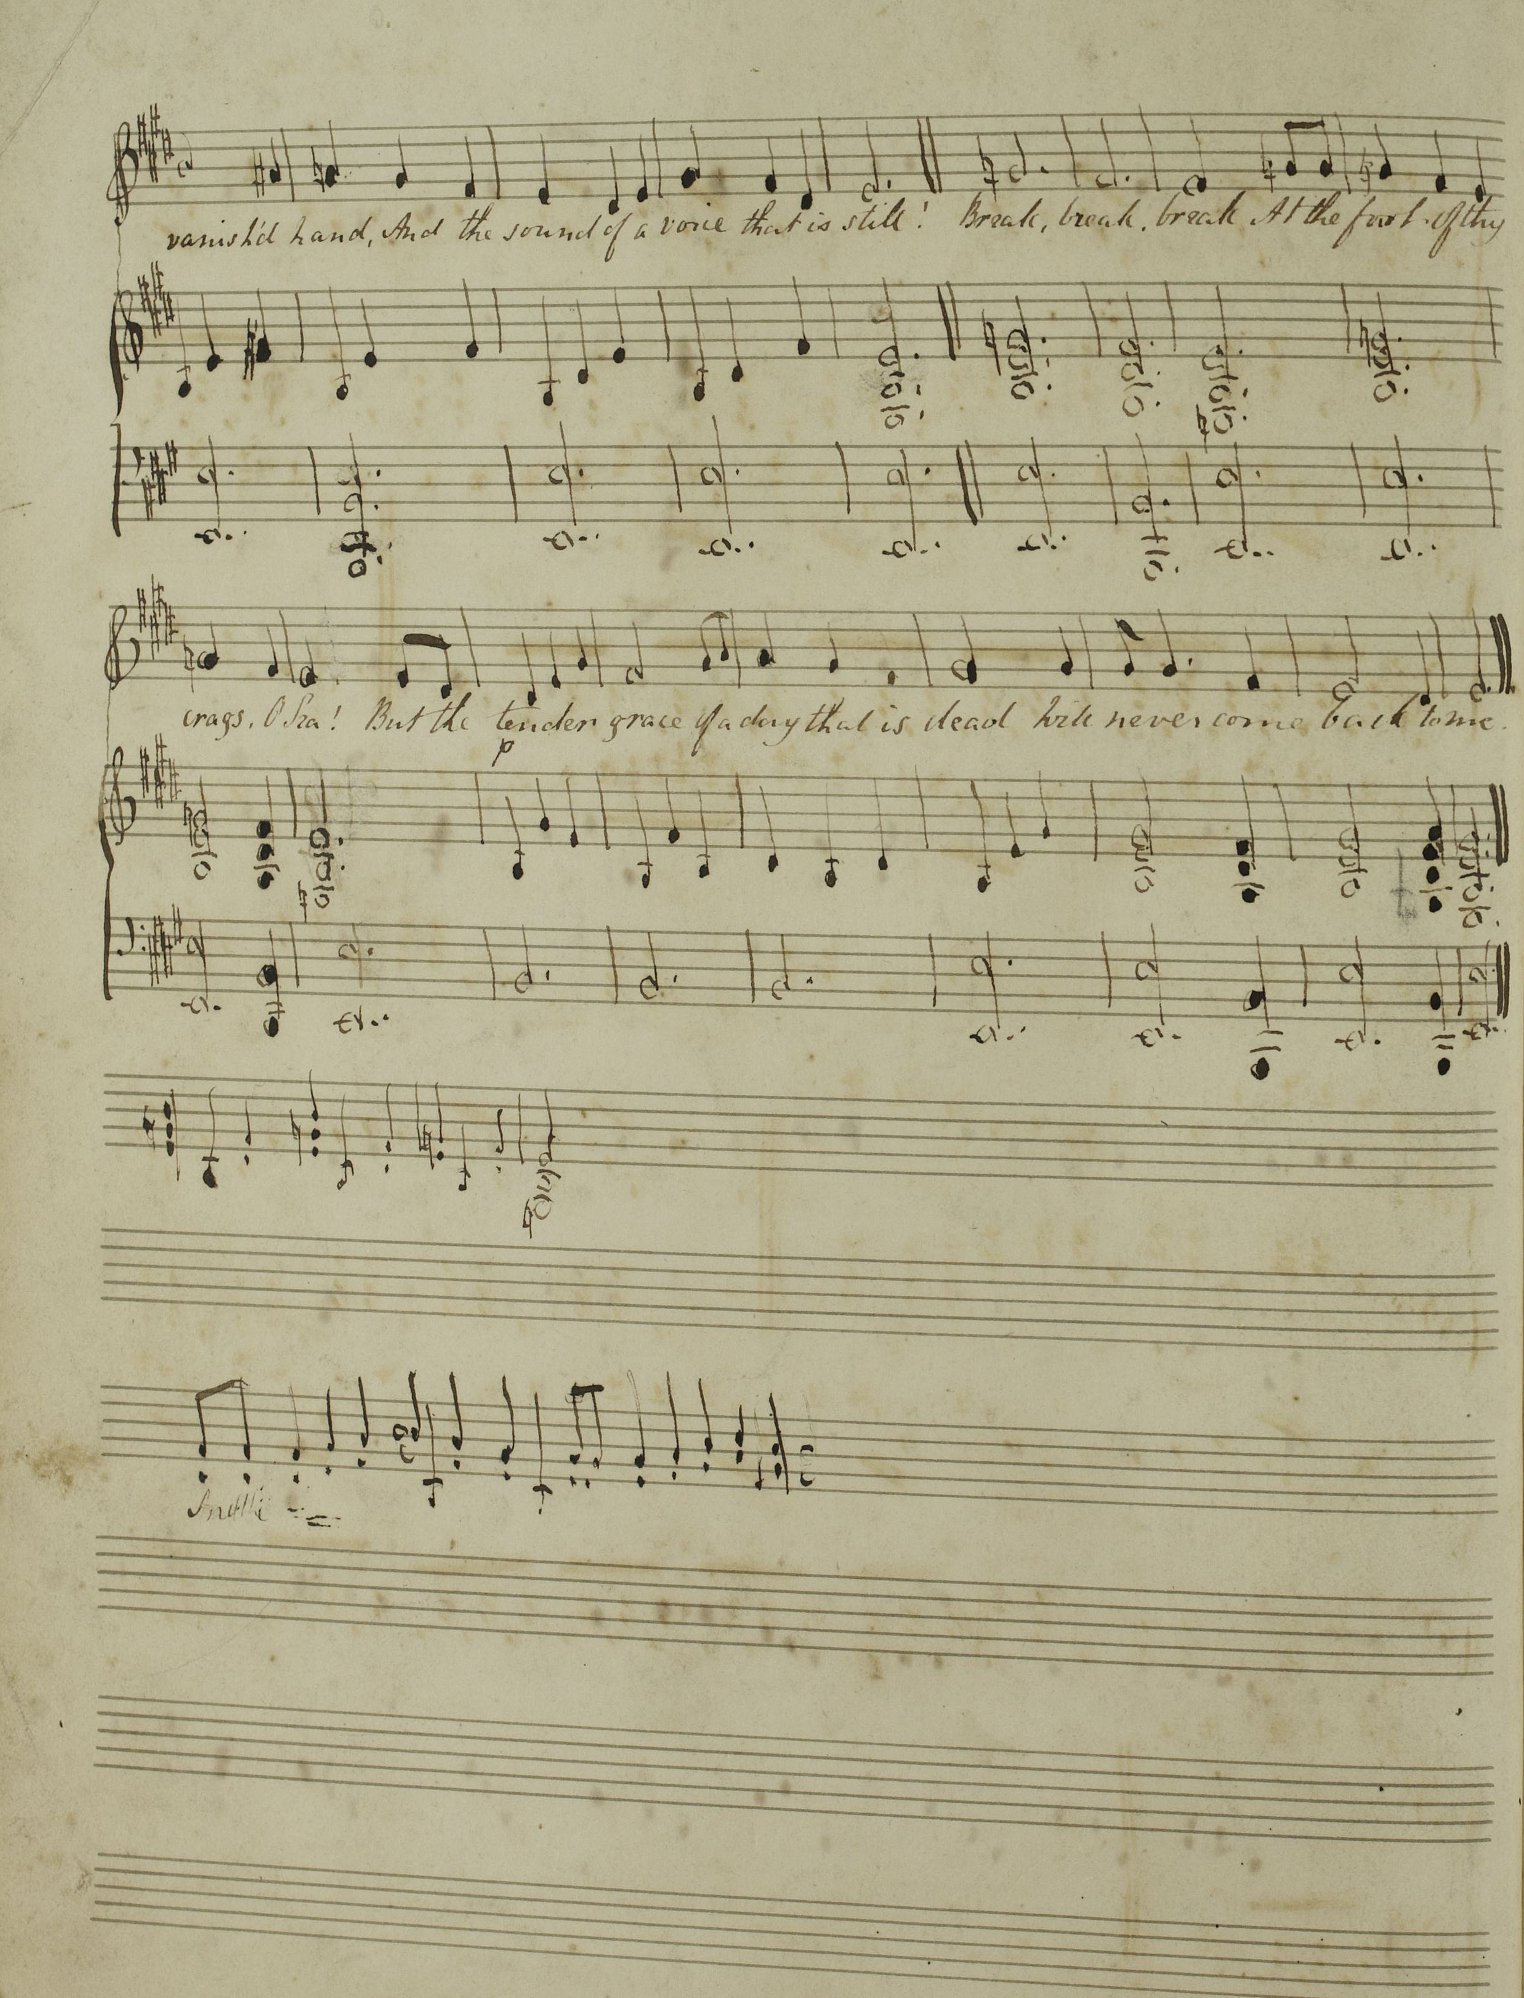 vanish'd hand, And the sound of a voice that is still! Break, break, break At the foot of thy
crags, O Sea! But the tender grace of a day that is dead Will never come back to me.
p
And the